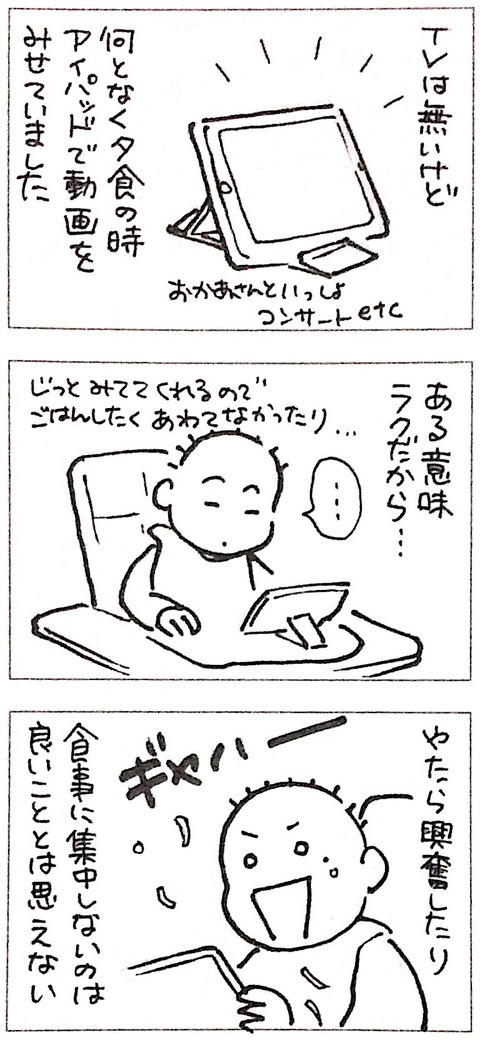 TVは無いけど
何となく夕食の時
アイパッドで動画を
みせていました
おかあさんといっしょ
コンサートetc
ある意味
ラクだから…
じっとみててくれるので
ごはんしたくあわてなかったり…
…
やたら興奮したり
ギャハー
食事に集中しないのは
良いこととは思えない